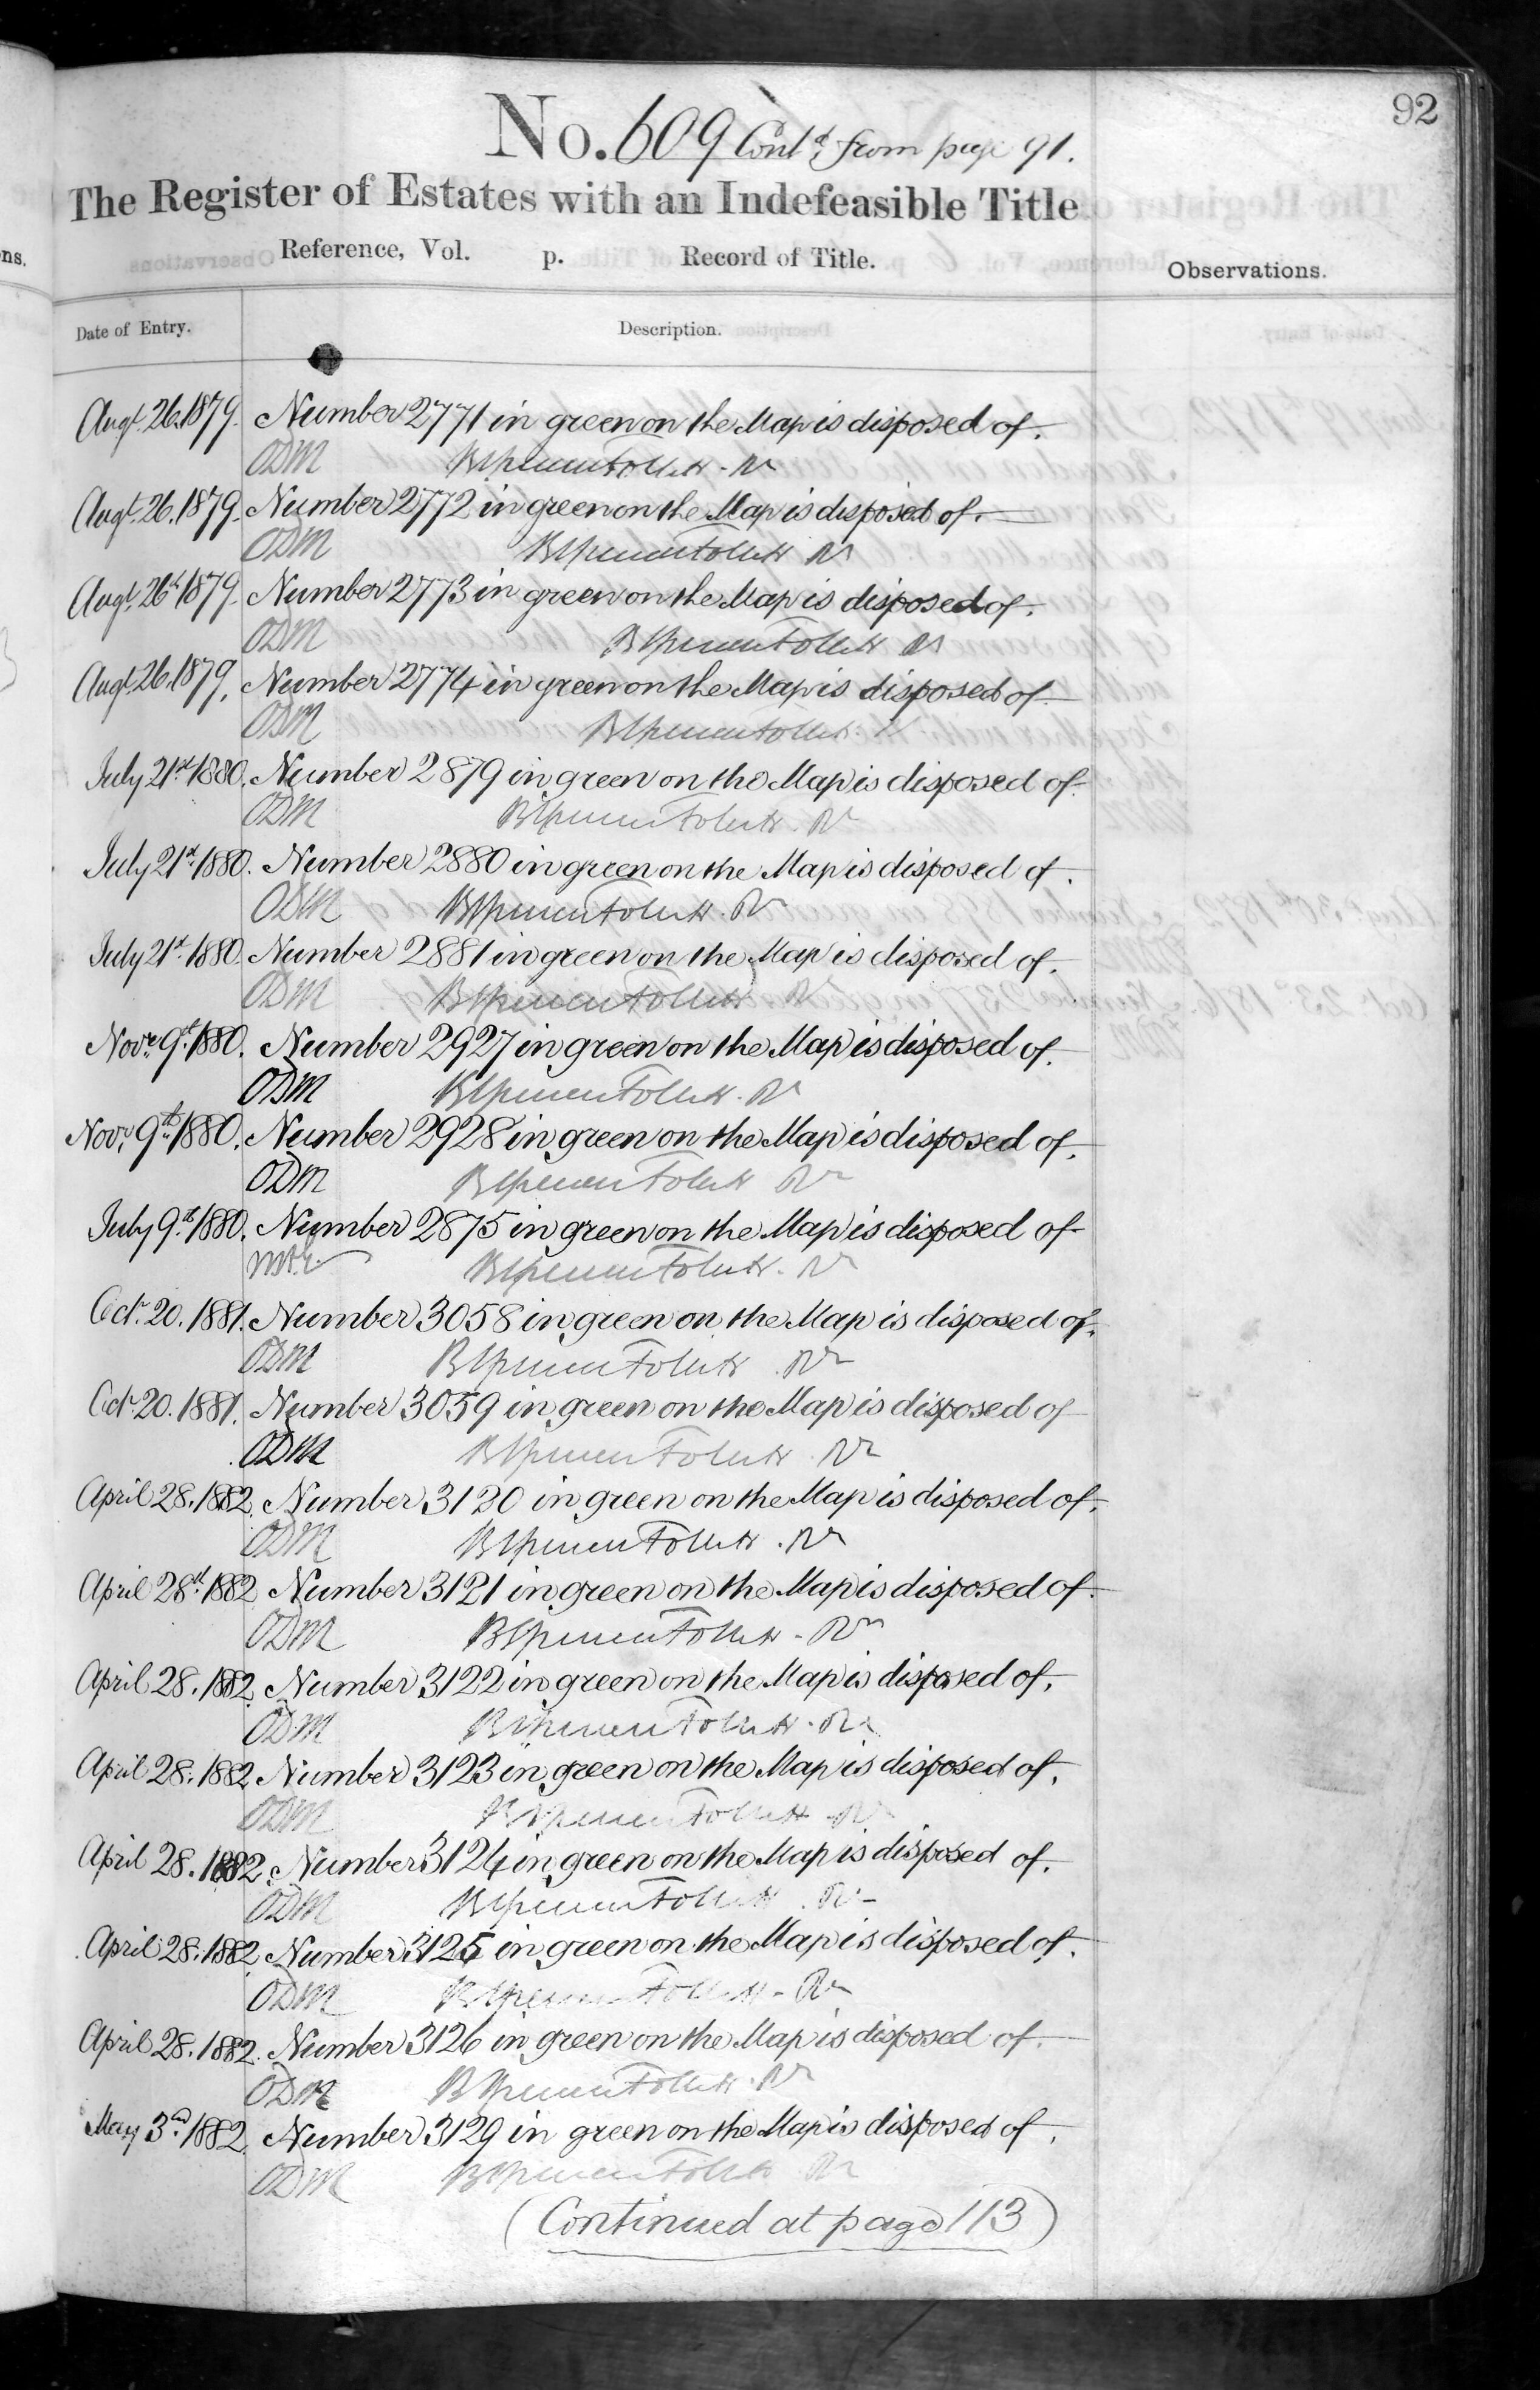 92
No. 609 Contd. from page 91.
The Register of Estates with an Indefeasible Title
Reference, Vol. p. Record of Title.
Observations.
ns.
Date of Entry. Description.
Augt. 26. 1879. Number 2771 in green on the Map is disposed of.
ODM
Augt. 26. 1879. Number 2772 in green on the Map is disposed of.
ODM
Augt. 26th 1879. Number 2773 in green on the Map is disposed of.
ODM
Augt. 26. 1879. Number 2774 in green on the Map is disposed of
ODM
July 21st 1880. Number 2879 in green on the Map is disposed of.
ODM
July 21st 1880. Number 2880 in green on the Map is disposed of.
ODM
July 21st 1880. Number 2881 in green on the Map is disposed of.
ODM
Novr. 9th 1880. Number 2927 in green on the Map is disposed of.
ODM
Novr. 9th 1880. Number 2928 in green on the Map is disposed of.
ODM
July 9th 1880. Number 2875 in green on the Map is disposed of
Octr. 20. 1881. Number 3058 in green on the Map is disposed of.
ODM
Octr. 20. 1881. Number 3059 in green on the Map is disposed of
ODM
April 28. 1882. Number 3120 in green on the Map is disposed of.
ODM
April 28th 1882 Number 3121 in green on the Map is disposed of.
ODM
April 28. 1882. Number 3122 in green on the Map is disposed of.
ODM
April 28. 1882. Number 3123 in green on the Map is disposed of.
ODM
April 28. 1882. Number 3124 in green on the Map is disposed of.
ODM
April 28. 1882 Number 3125 in green on the Map is disposed of.
ODM
April 28. 1882. Number 3126 in green on the Map is disposed of.
ODM
May 3rd 1882. Number 3129 in green on the Map is disposed of.
ODM
(Continued at page 113)